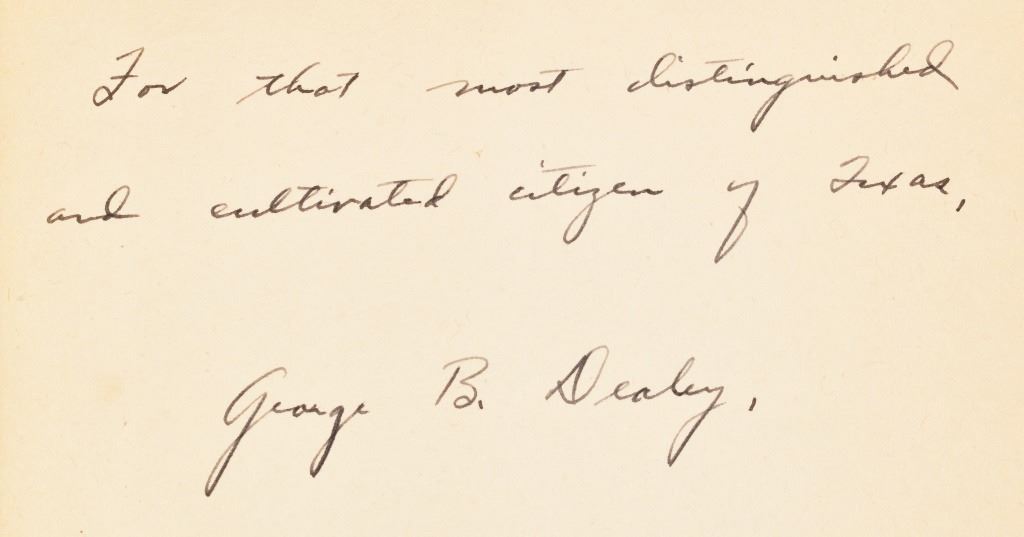 For that most distinguished
and cultivated citizen of Texas,
George B. Dealey,